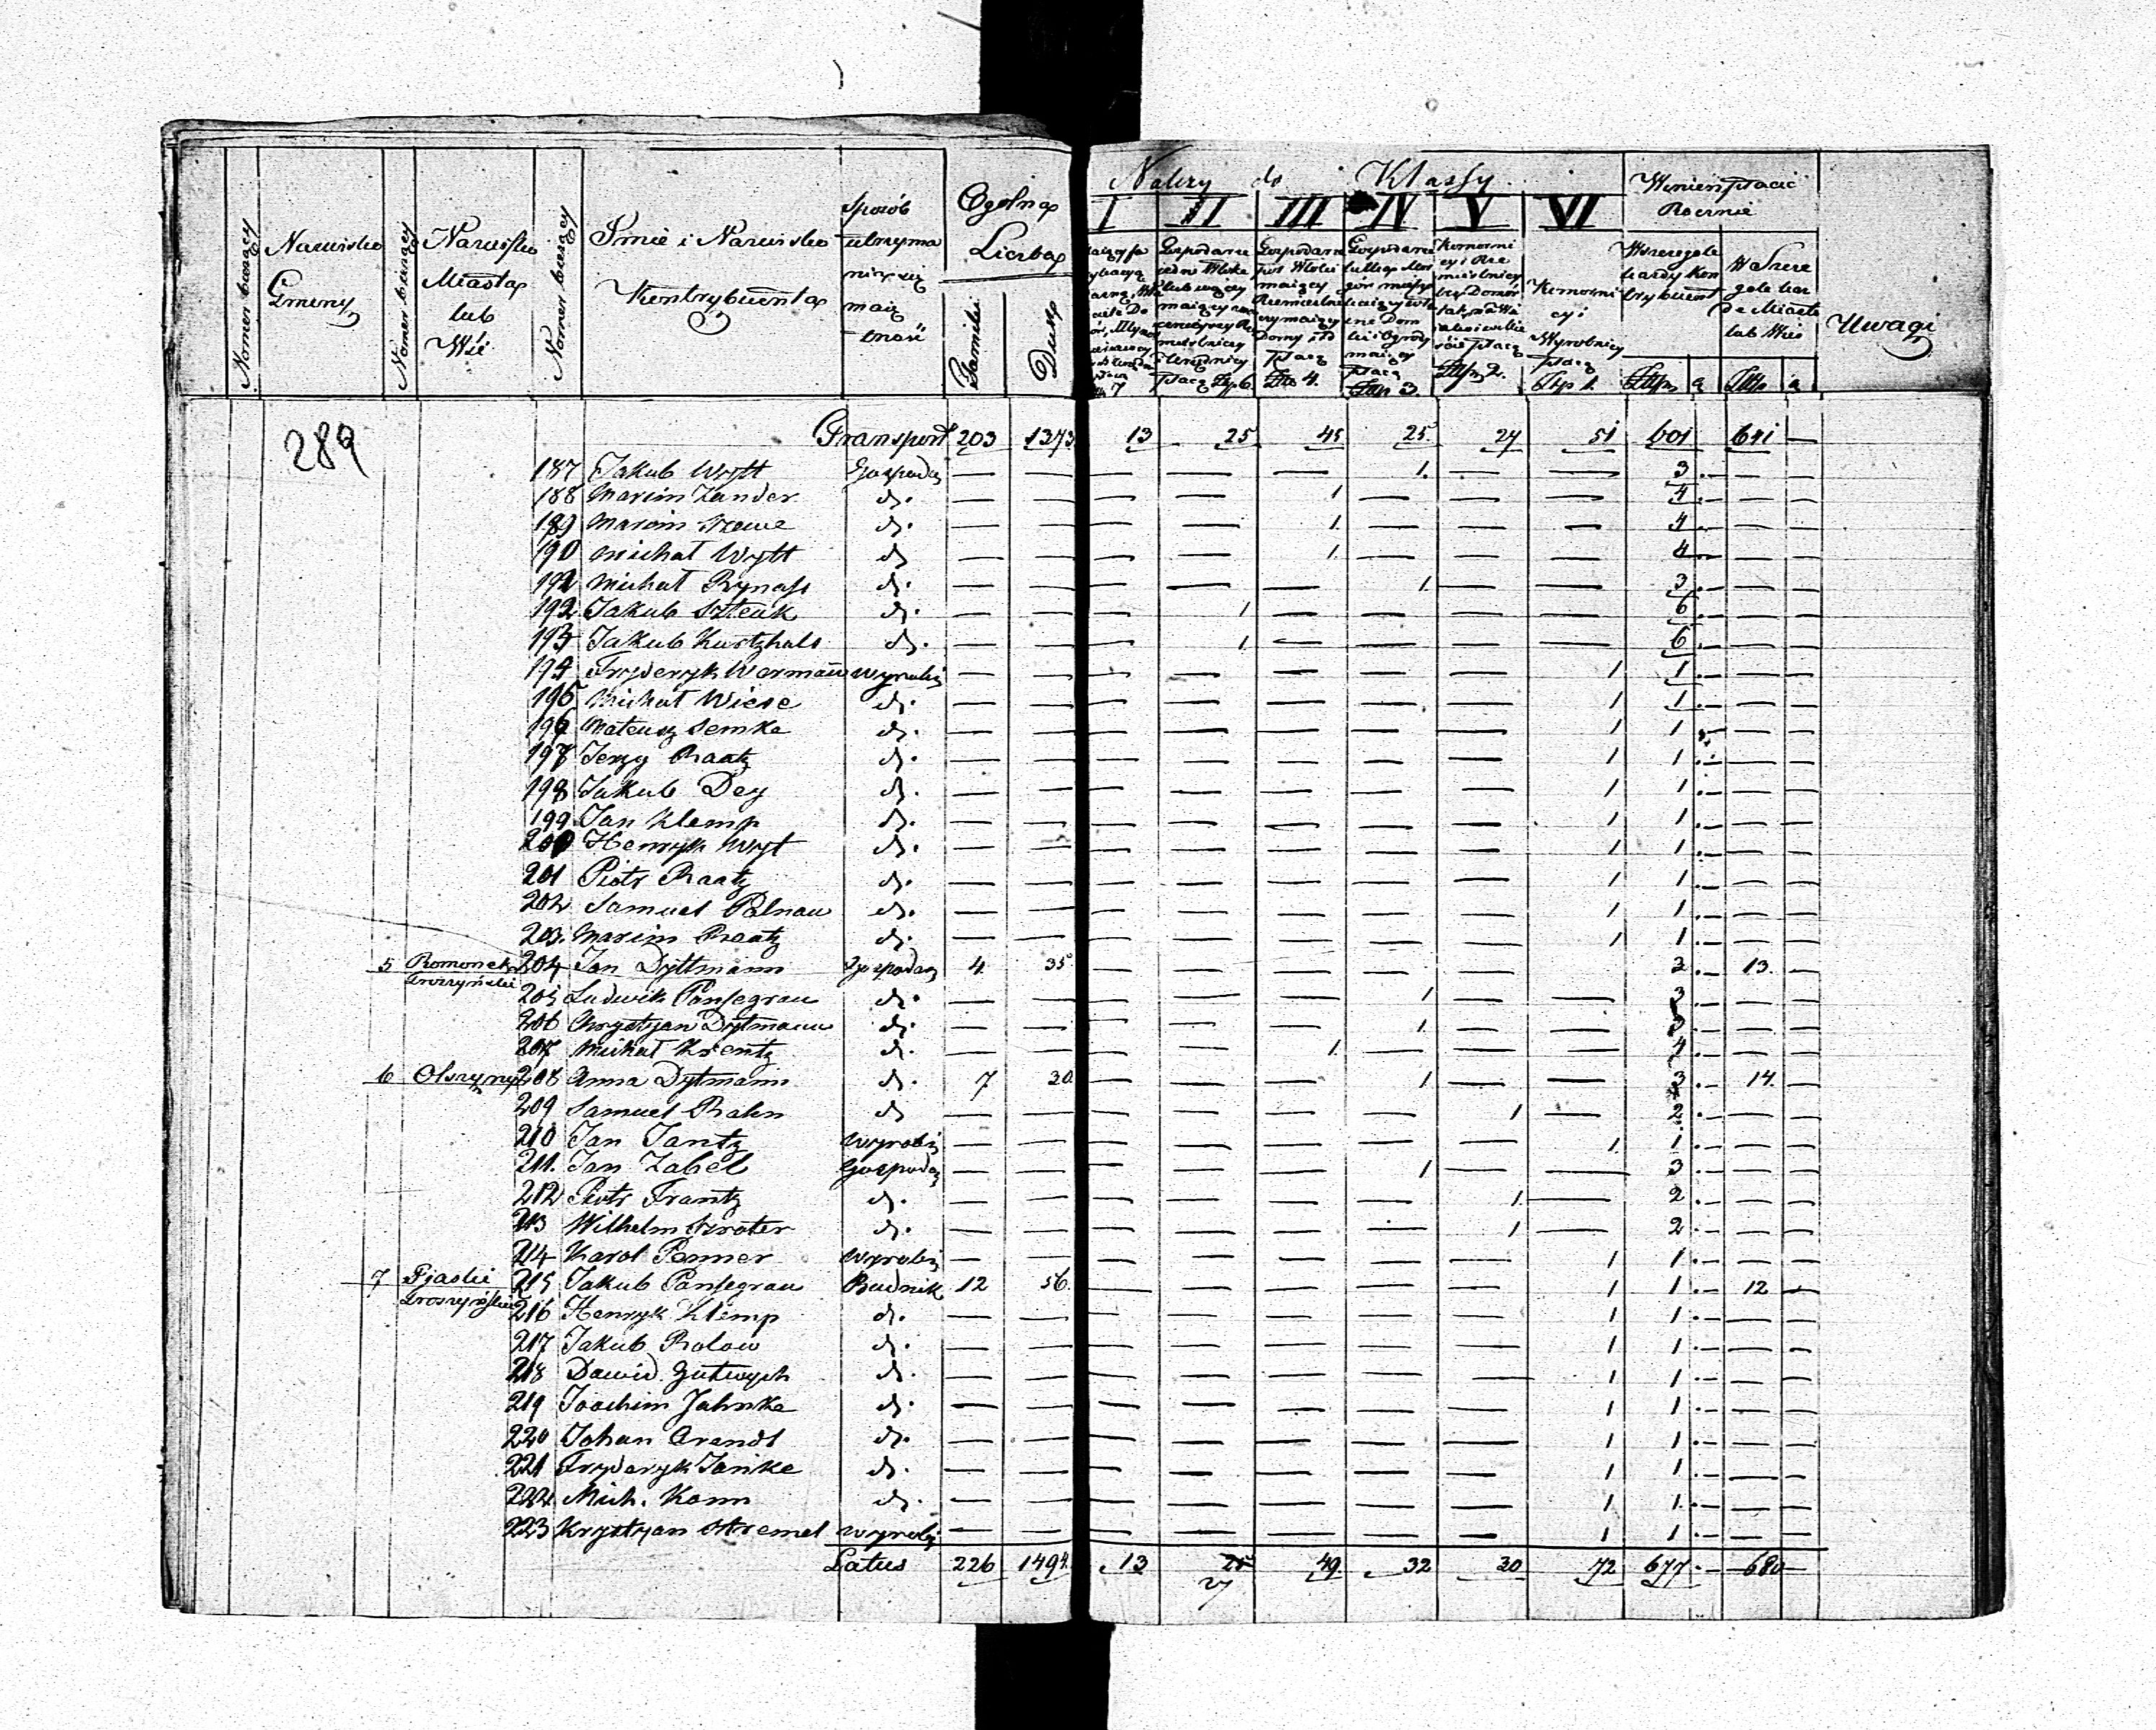 Numer bieżący
Nazwisko Gminy
Numer bieżący
Nazwisko Miasta lub Wsi
Numer bieżący
Imie i Nazwisko Kontrybuenta
Sposób utrzyma nia się maią tność
Ogólna Liczba
Familii
Dusz
Należy do Klassy
I II III IV V VI
Winien płacić Rocznie
Uwagi
płacą Złp 6.
płacą Złp 4.
płacą Złp 3.
płacą Złp 2.
Komorni cy i Wyrobnicy płacą Złp 1.
289
Transport 203 1373 13 25 45 25 24 51 601 641 —
187 Jakub Wytt Gospodaż — — — — — 1. — — 3 . — — —
188 Marcin Zander d. — — — — 1 — — — 4 . — — —
189 Marcin Trewe d. — — — — 1. — — — 4 . — — —
190 Michał Wytt d — — — — 1. — — — 4 . — — —
191 Michał Rynass d. — — — — — 1. — — 3 . — — —
192 Jakub Szteuk d. — — — 1 — — — — 6 . — — —
193 Jakub Kurtzhals d. — — — 1. — — — — 6 . — — —
194 Fryderyk Wermann wyrobn — — — — — — — 1 1 . — — —
195 Michał Wiese d. — — — — — — — 1 1 . — — —
196 Mateusz Semke d. — — — — — — — 1 1 — — —
197 Jerzy Raatz d. — — — — — — — 1 1 . — — —
198 Jakub Dey d. — — — — — — — 1 1 . — — —
199 Jan Klemp d. — — — — — — — 1 1 . — — —
200 Henryk Wyt d. — — — — — — — 1 1 . — — —
201 Piotr Raatz d. — — — — — — — 1 1 . — — —
202 Samuel Palnau d. — — — — — — — 1 1 . — — —
203. Marcin Raatz d. — — — — — — — 1 1 . — — —
5 204 Jan Dyttmann Gospodaż 4. 35 — — — — — — 3 . — 13. —
205 Ludwik Pansegrau d. — — — — — 1 — — 3 . — — —
206 Chrystyan Dytmann d. — — — — — 1. — — 3 . — — —
207 Michał Krentz d. — — — — 1. — — — 4 . — — —
6 Olszyny 208 Anna Dytmann d. 7 30 — — — 1 — — 3 . — 14. —
209 Samuel Rahn d — — — — — — 1 — 2 . — — —
210 Jan Jantz wyrobn — — — — — — — 1. 1 . — — —
211. Jan Zabel Gospodaż — — — — — 1 — — 3 . — — —
212 Piotr Frantz d. — — — — — — 1. — 2 . — — —
213 Wilhelm Szroter d. — — — — — — 1 — 2 . — — —
214 Karol Penner wyrobn — — — — — — — 1 1 . — — —
7 Piaski 215 Jakub Pansegrau Budnik 12 56. — — — — — 1 1 . — 12 —
216 Henryk Klemp d. — — — — — — — 1 1 . — — —
217 Jakub Rolow d. — — — — — — — 1 1 . — — —
218 Dawid Gutwych d. — — — — — — — 1 1 . — — —
219 Joachim Jahnke d. — — — — — — — 1 1 . — — —
220 Johan Arendt d. — — — — — — — 1 1 . — — —
221 Fryderyk Janke d. — — — — — — — 1 1 . — — —
222 Mich. Konn d. — — — — — — — 1 1 . — — —
223 Krystyan Stremel wyrobn — — — — — — — 1 1 . — — —
Latus 226 1494. 13 27 49. 32 30 72 677 . — 680 —